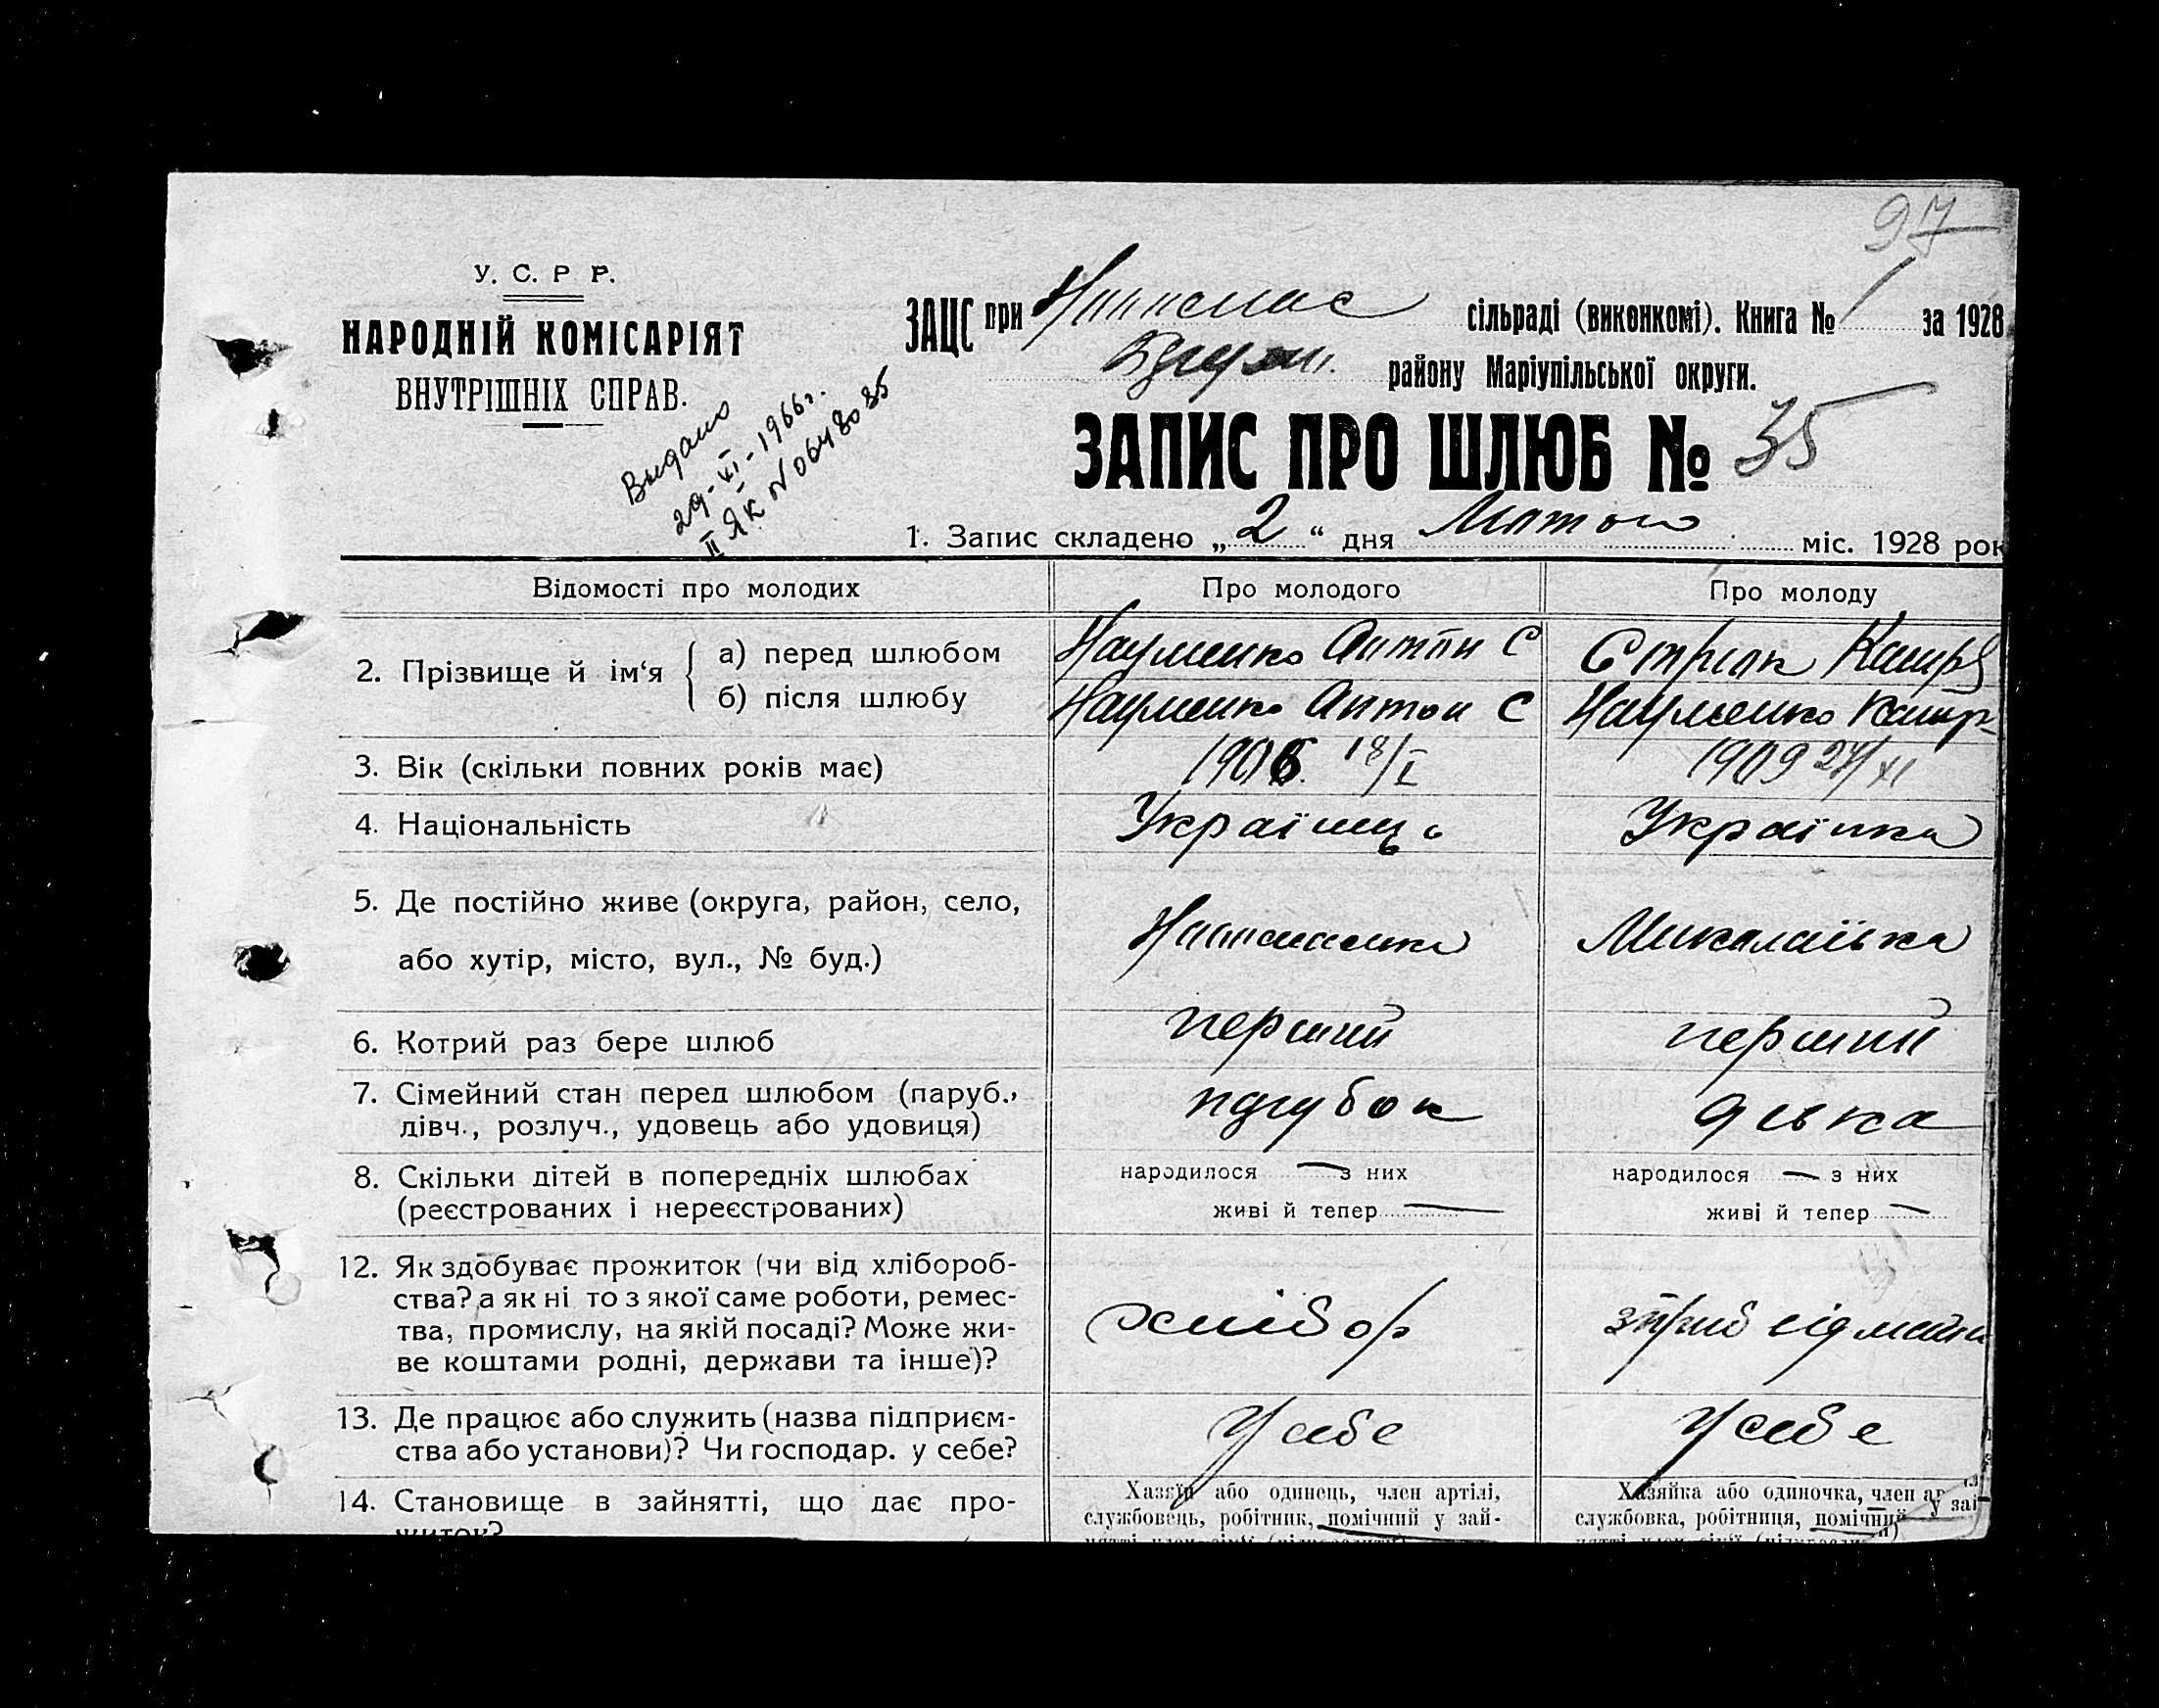 97
У. С. Р Р.
НАРОДНІЙ КОМІСАРІЯТ
ВНУТРІШНІХ СПРАВ.
Выдано
29-XI-1966г.
II ЯК № 0648035
ЗАЦС при сільраді (виконкомі). Книга № 1 за 1928
району Маріупільської округи.
ЗАПИС ПРО ШЛЮБ № 35
1. Запис складено „2“ дня Лютого міс. 1928 рок
Відомості про молодих Про молодого Про молоду
2. Прізвище й ім‘я а) перед шлюбом Науменко Антон С
б) після шлюбу Науменко Антон С Науменко
3. Вік (скільки повних років має) 1906. 18/I 1909 27/XI
4. Національність Українць Українка
5. Де постійно живе (округа, район, село, Миколаївка
або хутір, місто, вул., № буд.)
6. Котрий раз бере шлюб перший перший
7. Сімейний стан перед шлюбом (паруб., парубок дівка
дівч., розлуч., удовець або удовиця)
8. Скільки дітей в попередніх шлюбах народилося — з них народилося — з них
(реєстрованих і нереєстрованих) живі й тепер — живі й тепер —
12. Як здобуває прожиток (чи від хлібороб-
ства? а як ні то з якої саме роботи, ремес-
тва, промислу, на якій посаді? Може жи- хлібор
ве коштами родні, держави та інше)?
13. Де працює або служить (назва підприєм- У себе У себе
ства або установи)? Чи господар. у себе?
14. Становище в зайнятті, що дає про- Хазяїн або одинець, член артілі, Хазяйка або одиночка, член ар
житок? службовець, робітник, помічний у зай- службовка, робітниця, помічний у заі